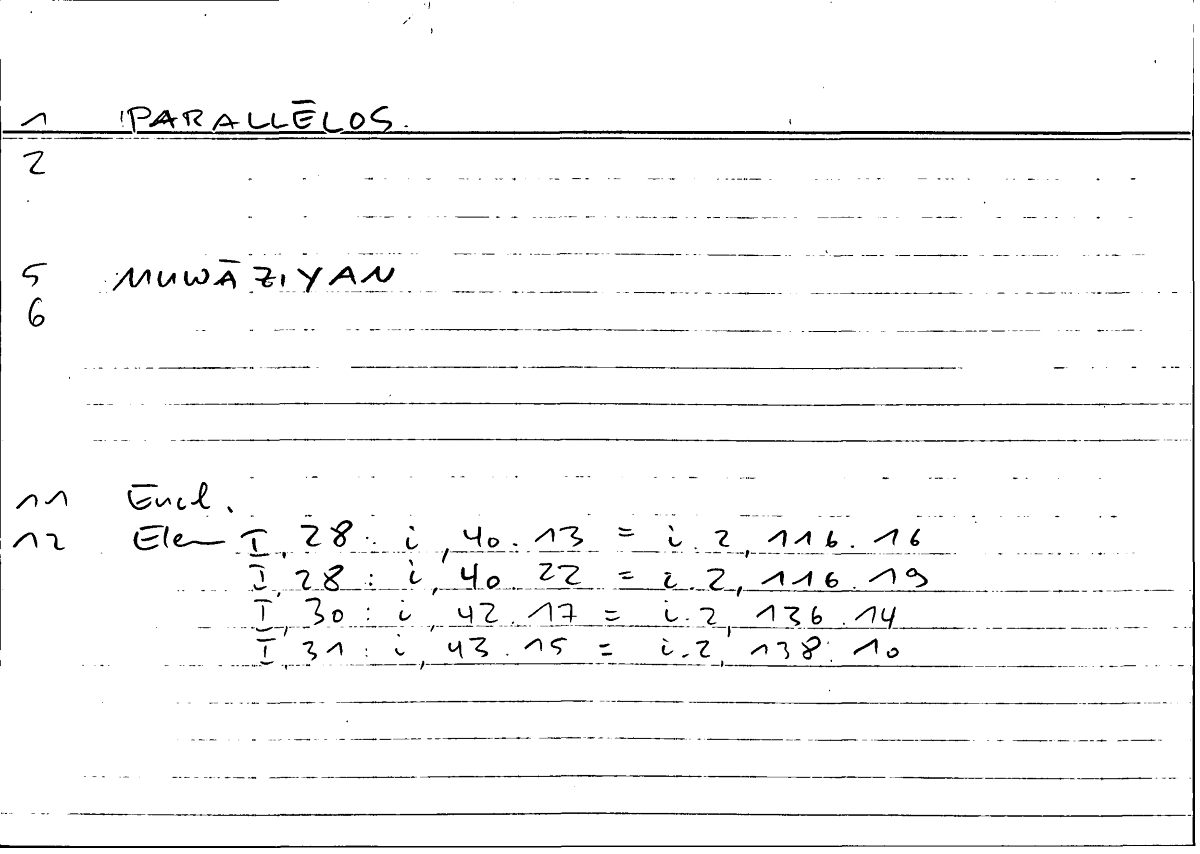 1 PARALLĒLOS.
2
5 MUWĀZIYAN
6
11 Eucl.
12 Elem I, 28 : i, 40.13 = i.2, 116.16
I, 28 : i, 40.22 = i.2, 116.19
I, 30 : i, 42.17 = i.2, 136.14
I, 31 : i, 43.15 = i.2, 138.10